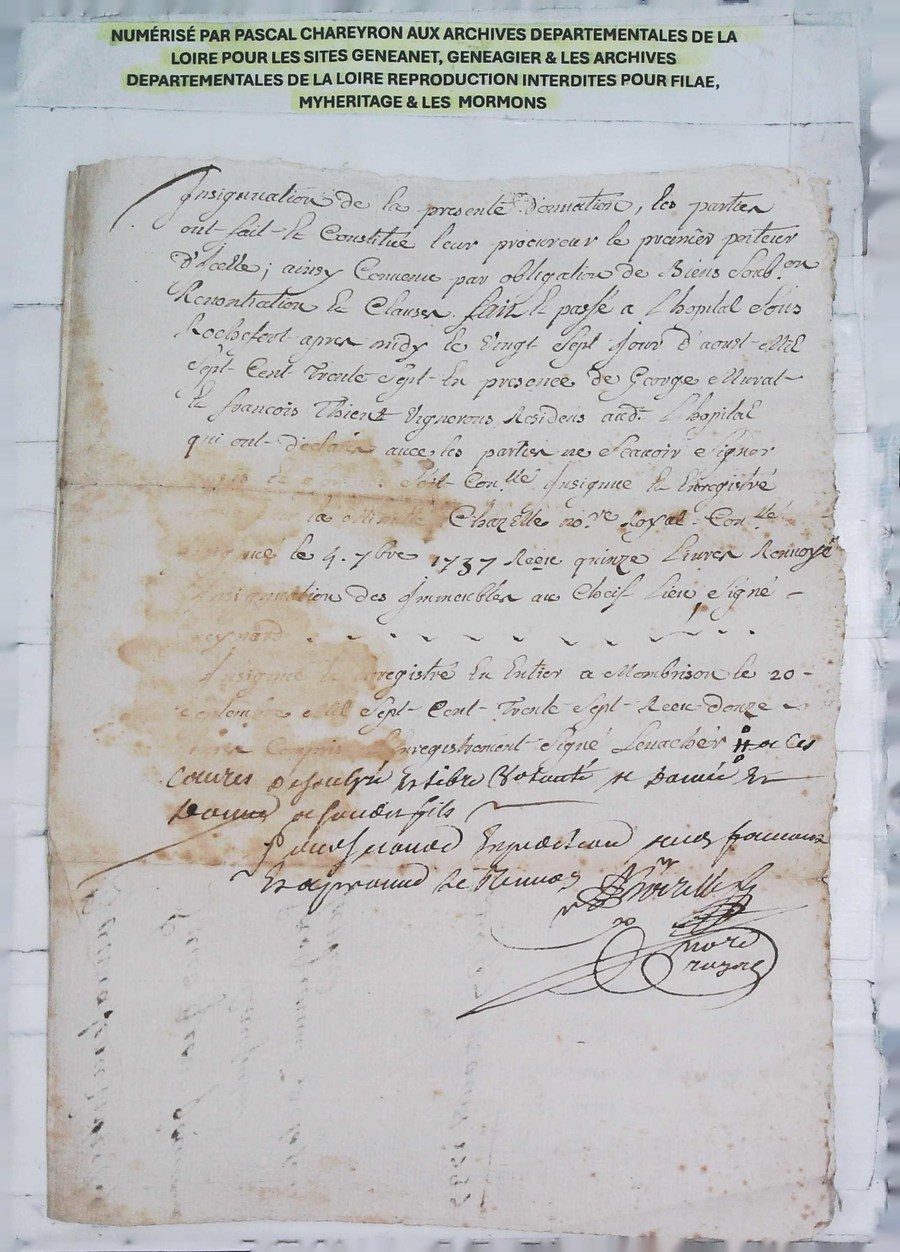 NUMÉRISÉ PAR PASCAL CHAREYRON AUX ARCHIVES DEPARTEMENTALES DE LA
LOIRE POUR LES SITES GENEANET, GENEAGIER & LES ARCHIVES
DEPARTEMENTALES DE LA LOIRE REPRODUCTION INTERDITES POUR FILAE,
MYHERITAGE & LES MORMONS
Insignuation de la presente Donnation, les parties
ont fait et Constitué leur procureur le premier porteur
D'Icelle; ainsy Convenu par obligation de Biens Soub.on
Renontiation et Clauses fait et passé a L'hopital Sous
Rochefort apres midy le Vingt Sept Jour d'aoust Mil
Sept Cent Trente Sept En presence de George Murat
et francois Thient Vignerons Residens aud.t L'hopital
qui ont declaré avec les parties ne Scavoir Signer
Con.llé Insigné et Enregistré
la Minutte Chazelle no.re Royal Con.llé
le 4. 7bre 1737 Receu quinze Livres Renvoyé
Insignuation des Immeubles au Cheif Lieu Signé
Reynard
Insigné et Enregistré En Entier a Montbrison le 20
Septembre Mil Sept Cent Trente Sept Receu Douze
Livres Compris L'Enregistrement Signé Levacher a Ces
Causes de son gré et libre Volonté a Donné et
Donne a fils